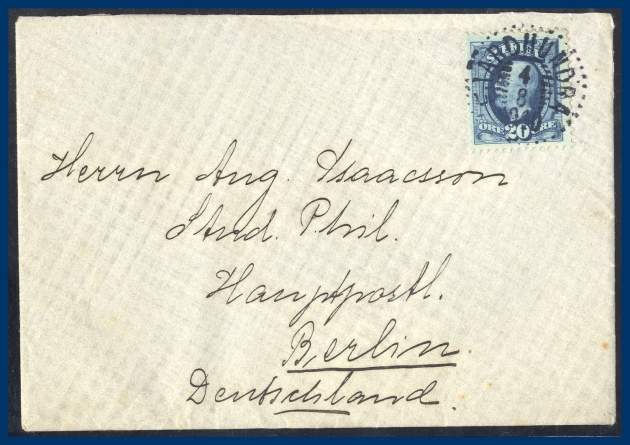 FJÄRDHUNDRA
4
8
ÖRE 20 ÖRE
Herrn Aug. Isaacsson
Stud. Phil.
Hauptpostl.
Berlin.
Deutschland.